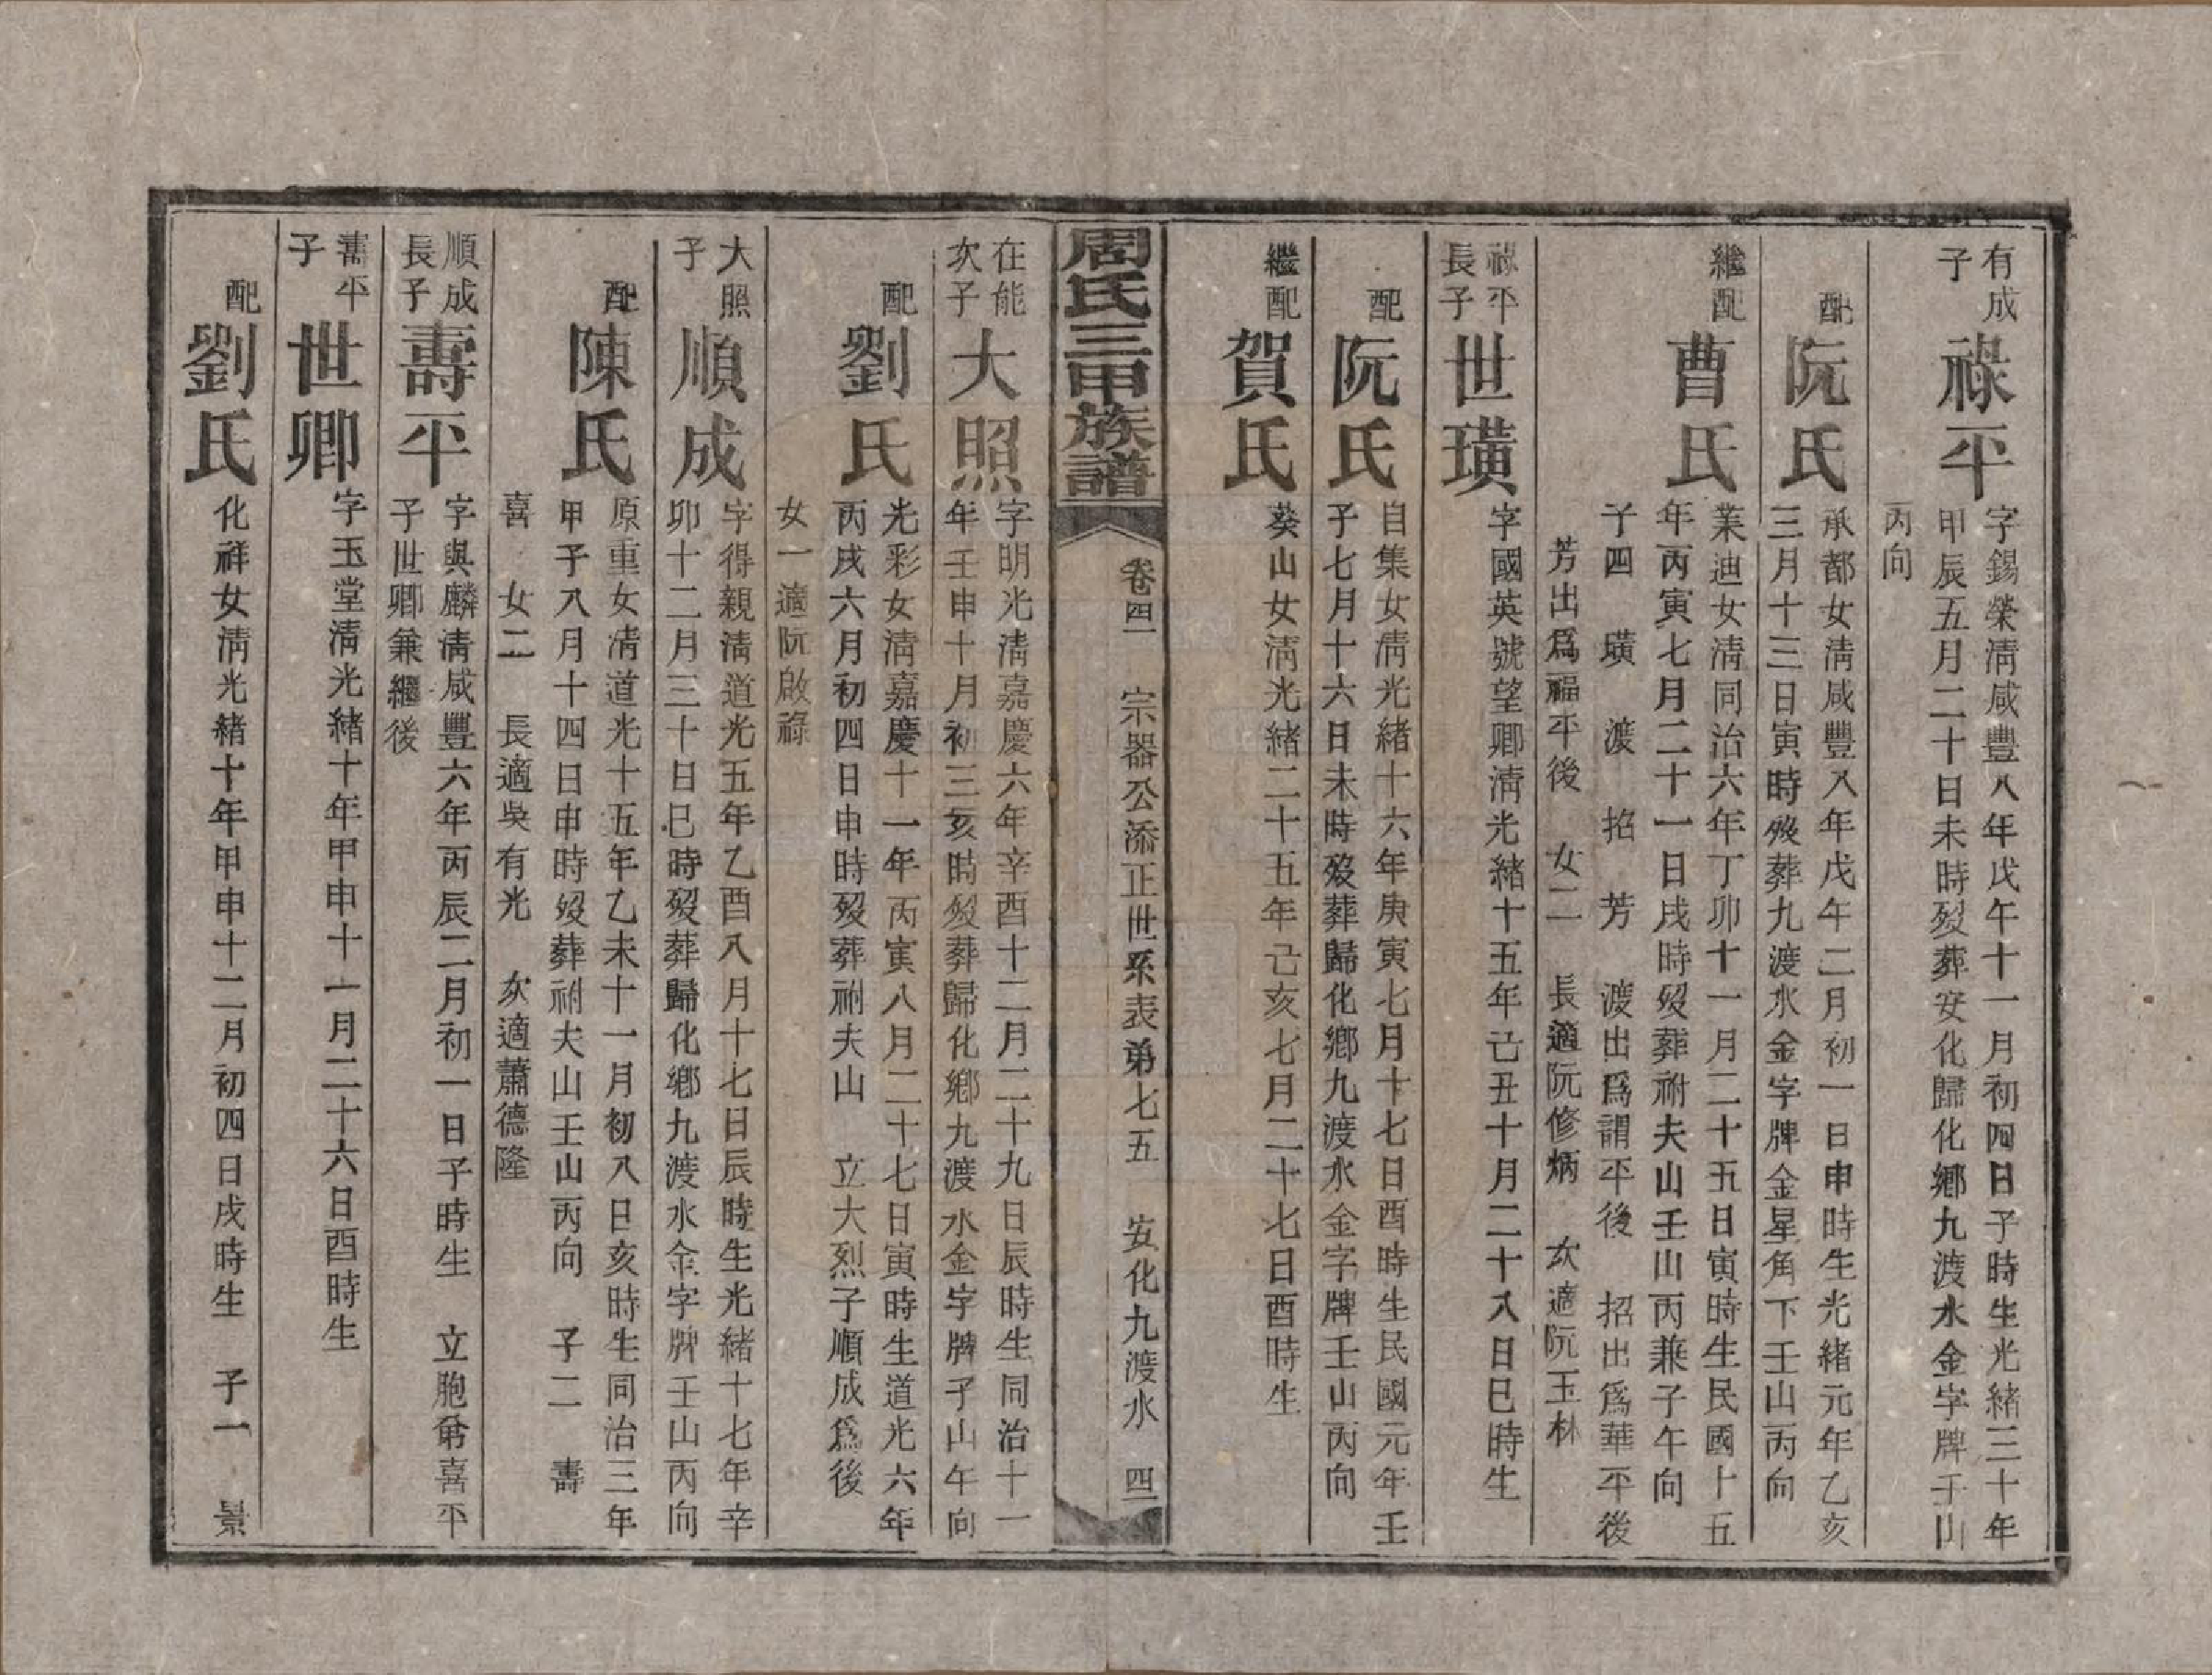 有成
子
祿平
字錫榮清咸豐八年戊午十一月初四日子時生光緒三十年
甲辰五月二十日未時歿葬安化歸化鄉九渡水金字牌子山
丙向
配
阮氏
承都女清咸豐八年戊午二月初一日申時生光緒元年乙亥
三月十三日寅時歿葬九渡水金字牌金星角下壬山丙向
繼配
曹氏
業迪女清同治六年丁卯十一月二十五日寅時生民國十五
年丙寅七月二十一日戌時歿葬祔夫山壬山丙兼子午向
子四 璜 渡 招 芳 渡出爲謂平後 招出爲華平後
芳出爲福平後 女二 長適阮修炳 次適阮玉林
祿平
長子
世璜
字國英號望卿清光緒十五年己丑十月二十八日巳時生
配
阮氏
自集女清光緒十六年庚寅七月十七日酉時生民國元年壬
子七月十六日未時歿葬歸化鄉九渡水金字牌壬山丙向
繼配
賀氏
葵山女清光緒二十五年己亥七月二十七日酉時生
周氏三甲族譜
卷四 宗器公添正世系表弟七五 安化九渡水 四
在能
次子
大照
字明光清嘉慶六年辛酉十二月二十九日辰時生同治十一
年壬申十月初三亥時歿葬歸化鄉九渡水金字牌子山午向
配
劉氏
光彩女清嘉慶十一年丙寅八月二十七日寅時生道光六年
丙戌六月初四日申時歿葬祔夫山 立大烈子順成爲後
女一適阮啟祿
大照
子
順成
字得親清道光五年乙酉八月十七日辰時生光緒十七年辛
卯十二月三十日巳時歿葬歸化鄉九渡水金字牌壬山丙向
配
陳氏
原重女清道光十五年乙未十一月初八日亥時生同治三年
甲子八月十四日申時歿葬祔夫山壬山丙向 子二 壽
喜 女二 長適吳有光 次適蕭德隆
順成
長子
壽平
字與麟清咸豐六年丙辰二月初一日子時生 立胞弟喜平
子世卿兼繼後
壽平
子
世卿
字玉堂清光緒十年甲申十一月二十六日酉時生
配
劉氏
化祥女清光緒十年甲申十二月初四日戌時生 子一 景